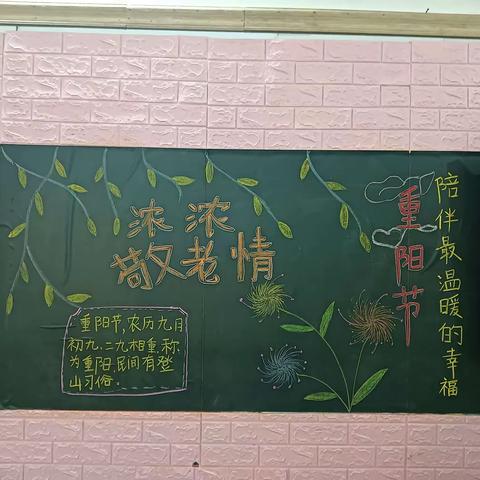 浓浓
敬老情
重阳节,农历九月
初九,二九相重,称
为重阳,民间有登
山习俗。
重阳节
陪伴最温暖的幸福